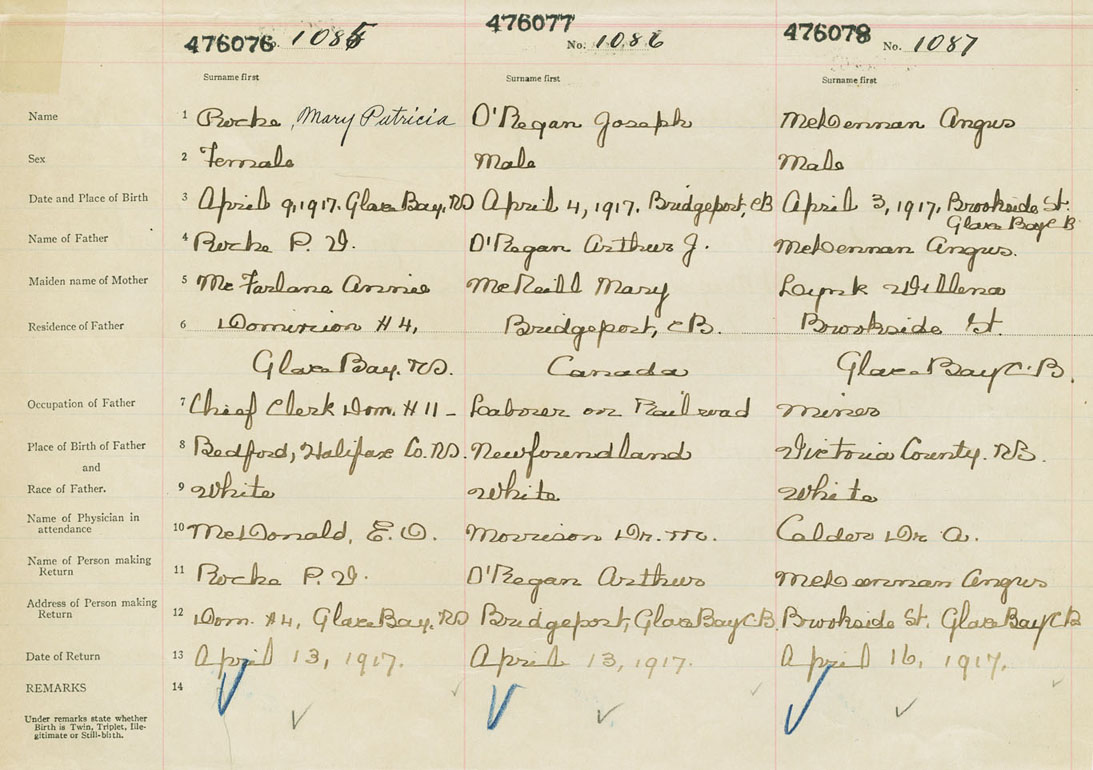 476076 1085 476077 No. 1086 476078 No. 1087
Surname first Surname first Surname first
Name 1 Roche, Mary Patricia O'Regan Joseph McLennan Angus
Sex 2 Female Male Male
Date and Place of Birth 3 April 9, 1917. Glace Bay, NS April 4, 1917. Bridgeport, CB April 3, 1917, Brookside St.
Glace Bay C B
Name of Father 4 Roche P. O'Regan Arthur J. McLennan Angus.
Maiden name of Mother 5 McFarlane Annie McNeill Mary Lynk Willena
Residence of Father 6 Dominion #4, Bridgeport, CB. Brookside St.
Glace Bay. NS. Canada Glace Bay C.B.
Occupation of Father 7 Chief Clerk Dom. #11 - Laborer on Railroad Miner
Place of Birth of Father 8 Bedford, Halifax Co. NS. Newfoundland Victoria County. NS.
and
Race of Father. 9 White White White
Name of Physician in
attendance 10 McDonald, E. O. Morrison Dr. M. Calder Dr A.
Name of Person making
Return 11 Roche P. O'Regan Arthur McLennan Angus
Address of Person making
Return 12 Dom. #4, Glace Bay. NS Bridgeport, Glace Bay C.B. Brookside St. Glace Bay CB
Date of Return 13 April 13, 1917. April 13, 1917. April 16, 1917.
REMARKS 14
Under remarks state whether
Birth is Twin, Triplet, Ille-
gitimate or Still-bith.